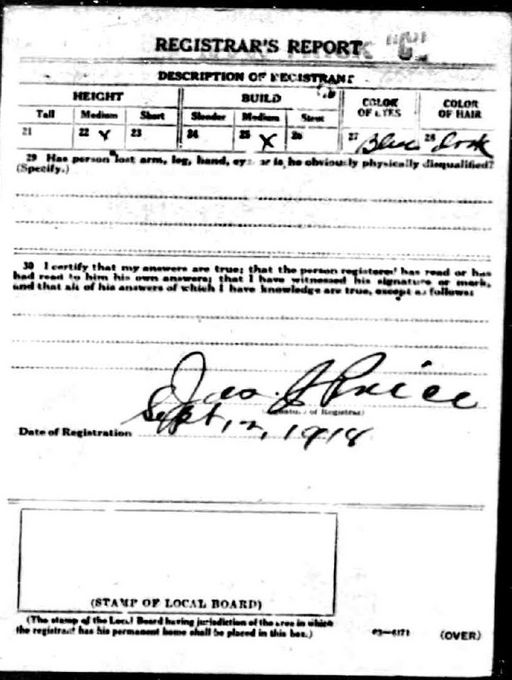 REGISTRAR'S REPORT
DESCRIPTION OF REGISTRANT
HEIGHT BUILD COLOR OF EYES COLOR OF HAIR
Tall Medium Short Slender Medium Stout
21 22 X 23 24 25 X 26 27 Blue 28 dark
29 Has person lost arm, leg, hand, eye, or is he obviously physically disqualified?
(Specify.)
30 I certify that my answers are true; that the person registered has read or has
had read to him his own answers; that I have witnessed his signature or mark,
and that all of his answers of which I have knowledge are true, except as follows:
Jas. S Price
(Signature of Registrar)
Date of Registration Sept, 12, 1918
(STAMP OF LOCAL BOARD)
(The stamp of the Local Board having jurisdiction of the area in which
the registrant has his permanent home shall be placed in this box.)
03—6171 (OVER)